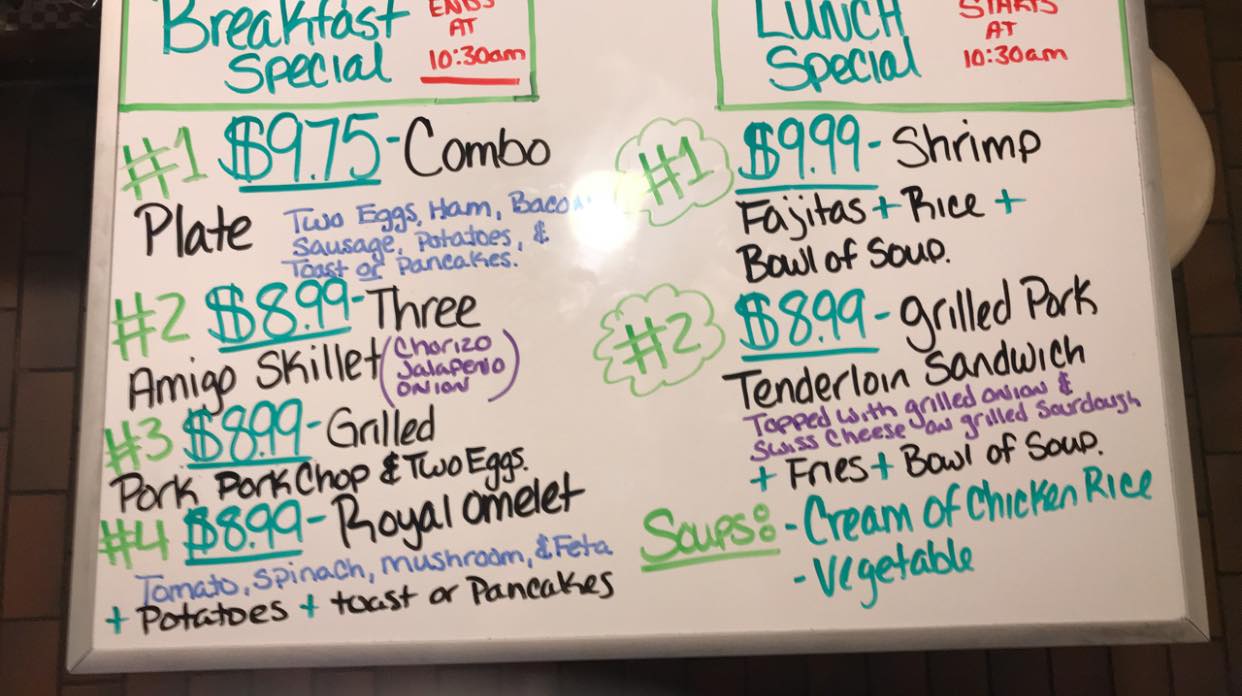 Breakfast
Special
ENDS
AT
10:30am
#1 $9.75-Combo
Plate
Two Eggs, Ham, Bacon
Sausage, Potatoes, &
Toast or Pancakes.
#2 $8.99-Three
Amigo Skillet (Chorizo
Jalapeno
Onion)
#3 $8.99-Grilled
Pork Pork Chop & Two Eggs.
#4 $8.99-Royal omelet
Tomato, Spinach, mushroom, & Feta
+ Potatoes + toast or Pancakes
LUNCH
Special
STARTS
AT
10:30am
#1 $9.99-Shrimp
Fajitas + Rice +
Bowl of Soup.
#2 $8.99-grilled Pork
Tenderloin Sandwich
Topped with grilled onion &
Swiss Cheese on grilled Sourdough
+ Fries + Bowl of Soup.
Soups: - Cream of Chicken Rice
- Vegetable